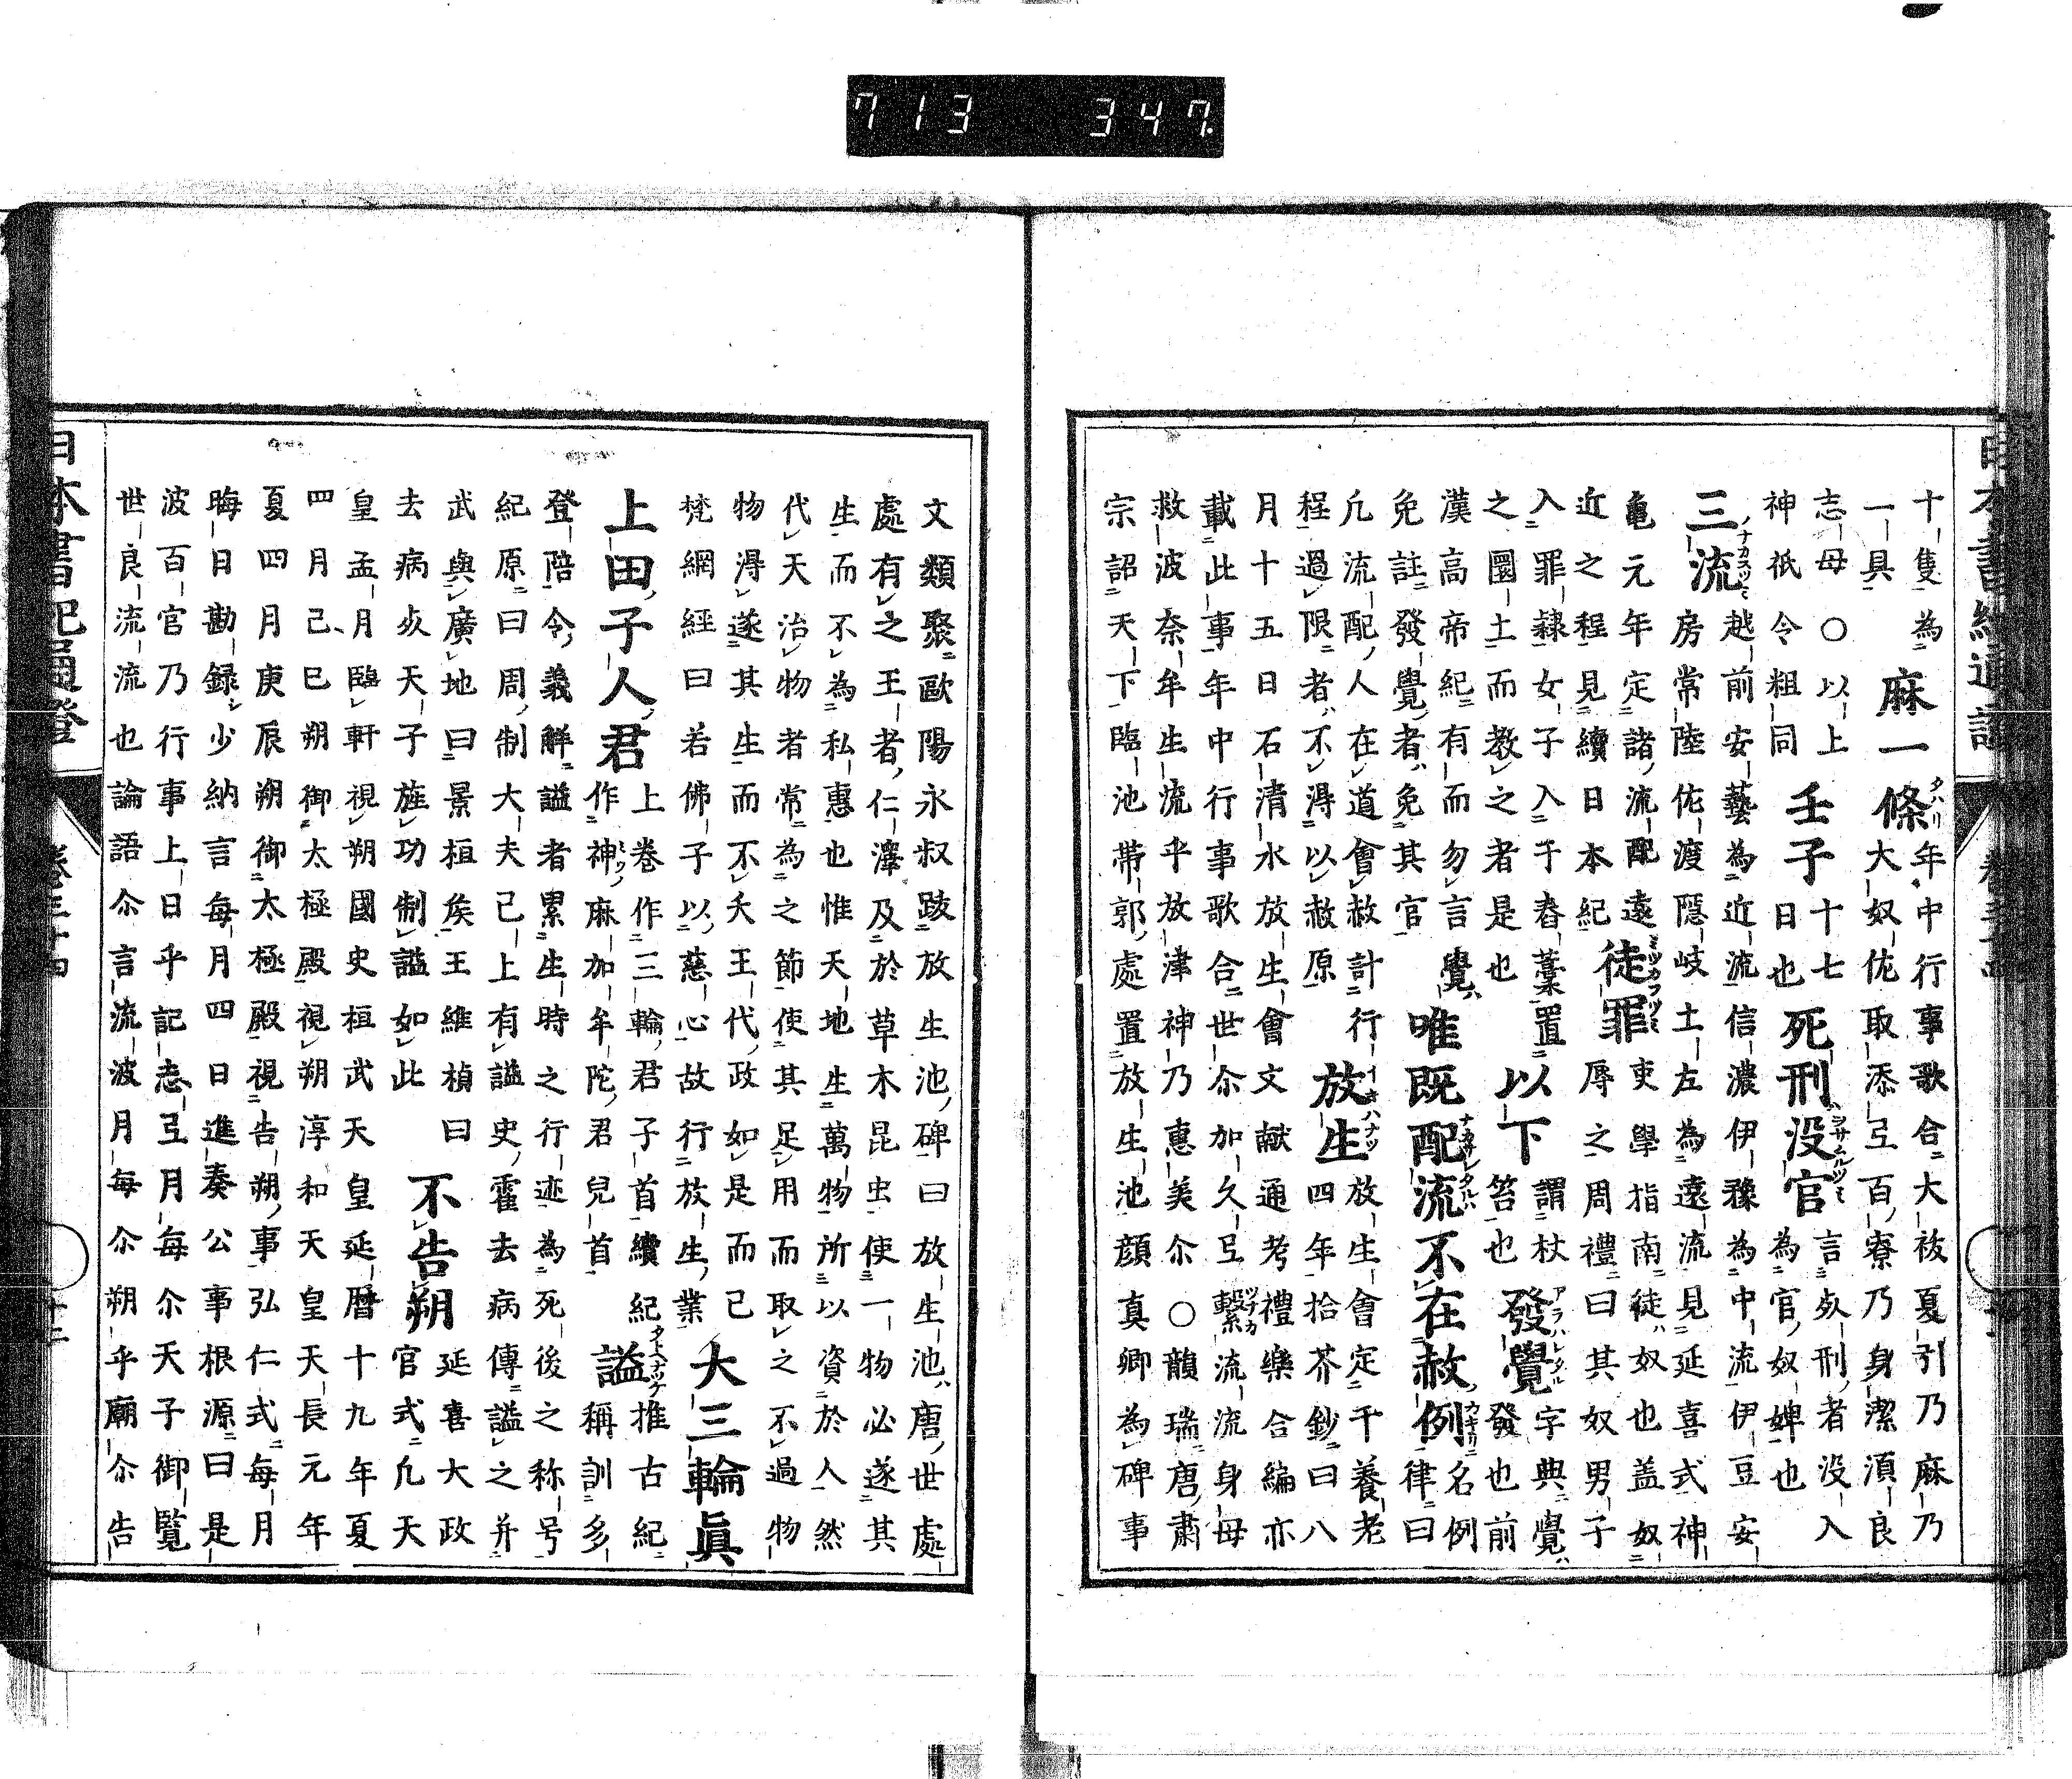 713 347.
十隻為麻一條年中行事歌合大祓夏引乃麻乃
一具 大奴佐取添弖百寮乃身潔湏良
志母〇以上
神祇令粗同
壬子十七日也
死刑没官言処刑者没入為官奴婢也
三流越前安藝為近流信濃伊豫為中流伊豆安
房常陸佐渡隠岐土左為遠流見延喜式神
龜元年定諸流配遠近之程見續日本紀
徒罪吏學指南徒奴也盖奴辱之周禮曰其奴男子
入罪隷女子入于舂藁置之圜土而教之者是也
以下謂杖笞也
發覺字典覺發也前
漢高帝紀有而勿言覺
免註發覺者免其官
唯既配流不在赦例名例律曰
凢流配人在道會赦計行程過限者不得以赦原
放生放生會定千養老四年拾芥鈔曰八
月十五日石清水放生會文献通考禮樂合編亦
載此事年中行事歌合世尒加久弖繋流流身母
救波奈牟生流乎放津神乃惠美尒〇韻瑞唐肅
宗詔天下臨池帯郭處置放生池顔真卿為碑事
文類聚歐陽永叔跋放生池碑曰放生池唐世處
處有之王者仁澤及於草木昆虫使一物必遂其
生而不為私惠也惟天地生萬物所以資於人然
代天治物者常為之節使其足用而取之不過物
物得遂其生而不夭王代政如是而己
梵網經曰若佛子以慈心故行放生業
大三輪眞
上田子人君上卷作三輪君子首續紀
作神麻加牟陀君兒首
謚推古紀稱訓多
登陪令義解謚者累生時之行迹為死後之称号
紀原曰周制大夫已上有謚史霍去病傳謚之并
武與廣地曰景桓矦王維楨曰
去病処天子旌功制謚如此
不告朔延喜大政官式凢天
皇孟月臨軒視朔國史桓武天皇延暦十九年夏
四月己巳朔御太極殿視朔淳和天皇天長元年
夏四月庚辰朔御太極殿視告朔事弘仁式每月
晦日勘録少納言每月四日進奏公事根源曰是
波百官乃行事上日乎記志弖月每尒天子御覧
世良流流也論語尒言流波月每尒朔乎廟尒告